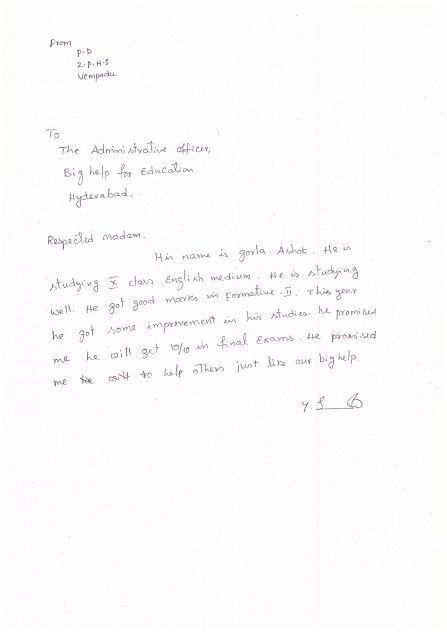 From
P.D
Z.P.H.S
Vempadu.
To
The Administrative officer,
Big help for Education
Hyderabad.
Respected madam.
His name is gorla. Ashok. He is
studying X class English medium. He is studying
well. He got good marks in Formative. II. This year
he got some improvement in his studies. he promised
me he will get 10/10 in final Exams. He promised
me to help others just like our bighelp.